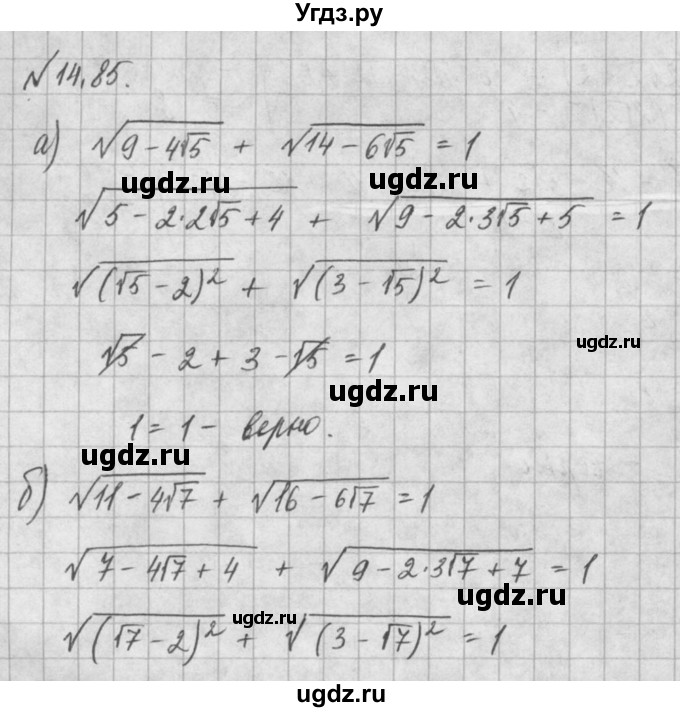 Угдз.ру
№14.85.
а) √(9 - 4√5) + √(14 - 6√5) = 1
ugdz.ru ugdz.ru
√(5 - 2·2√5 + 4) + √(9 - 2·3√5 + 5) = 1
√((√5 - 2)²) + √((3 - √5)²) = 1
ugdz.ru
√5 - 2 + 3 - √5 = 1
ugdz.ru
1 = 1 - верно.
ugdz.ru
б) √(11 - 4√7) + √(16 - 6√7) = 1
√(7 - 4√7 + 4) + √(9 - 2·3√7 + 7) = 1
ugdz.ru
ugdz.ru
√((√7 - 2)²) + √((3 - √7)²) = 1
ugdz.ru